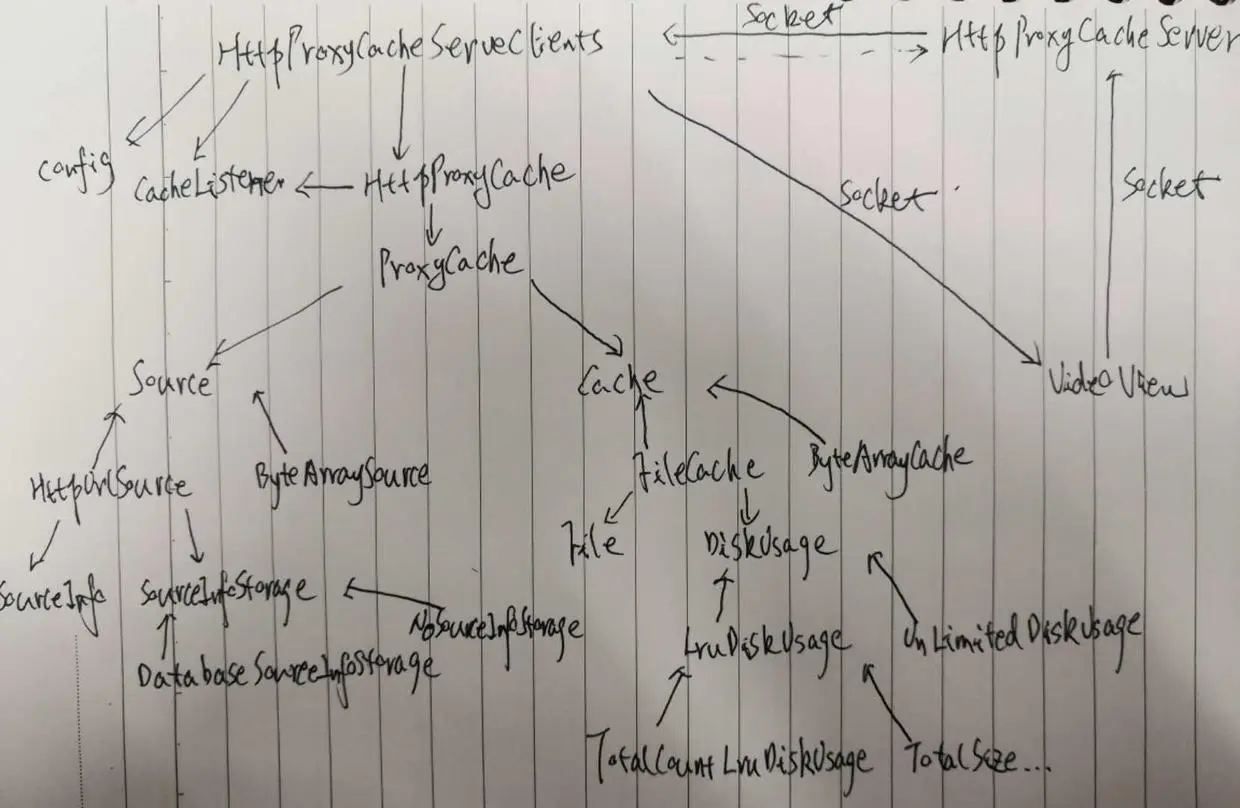 Socket
HttpProxyCacheServeClients
HttpProxyCacheServer
config
CacheListener
HttpProxyCache
Socket
Socket
ProxyCache
Source
Cache
VideoView
HttpUrlSource
ByteArraySource
FileCache
ByteArrayCache
File
DiskUsage
SourceInfo
SourceInfoStorage
NoSourceInfoStorage
LruDiskUsage
UnLimitedDiskUsage
DatabaseSourceInfoStorage
TotalCountLruDiskUsage
TotalSize...